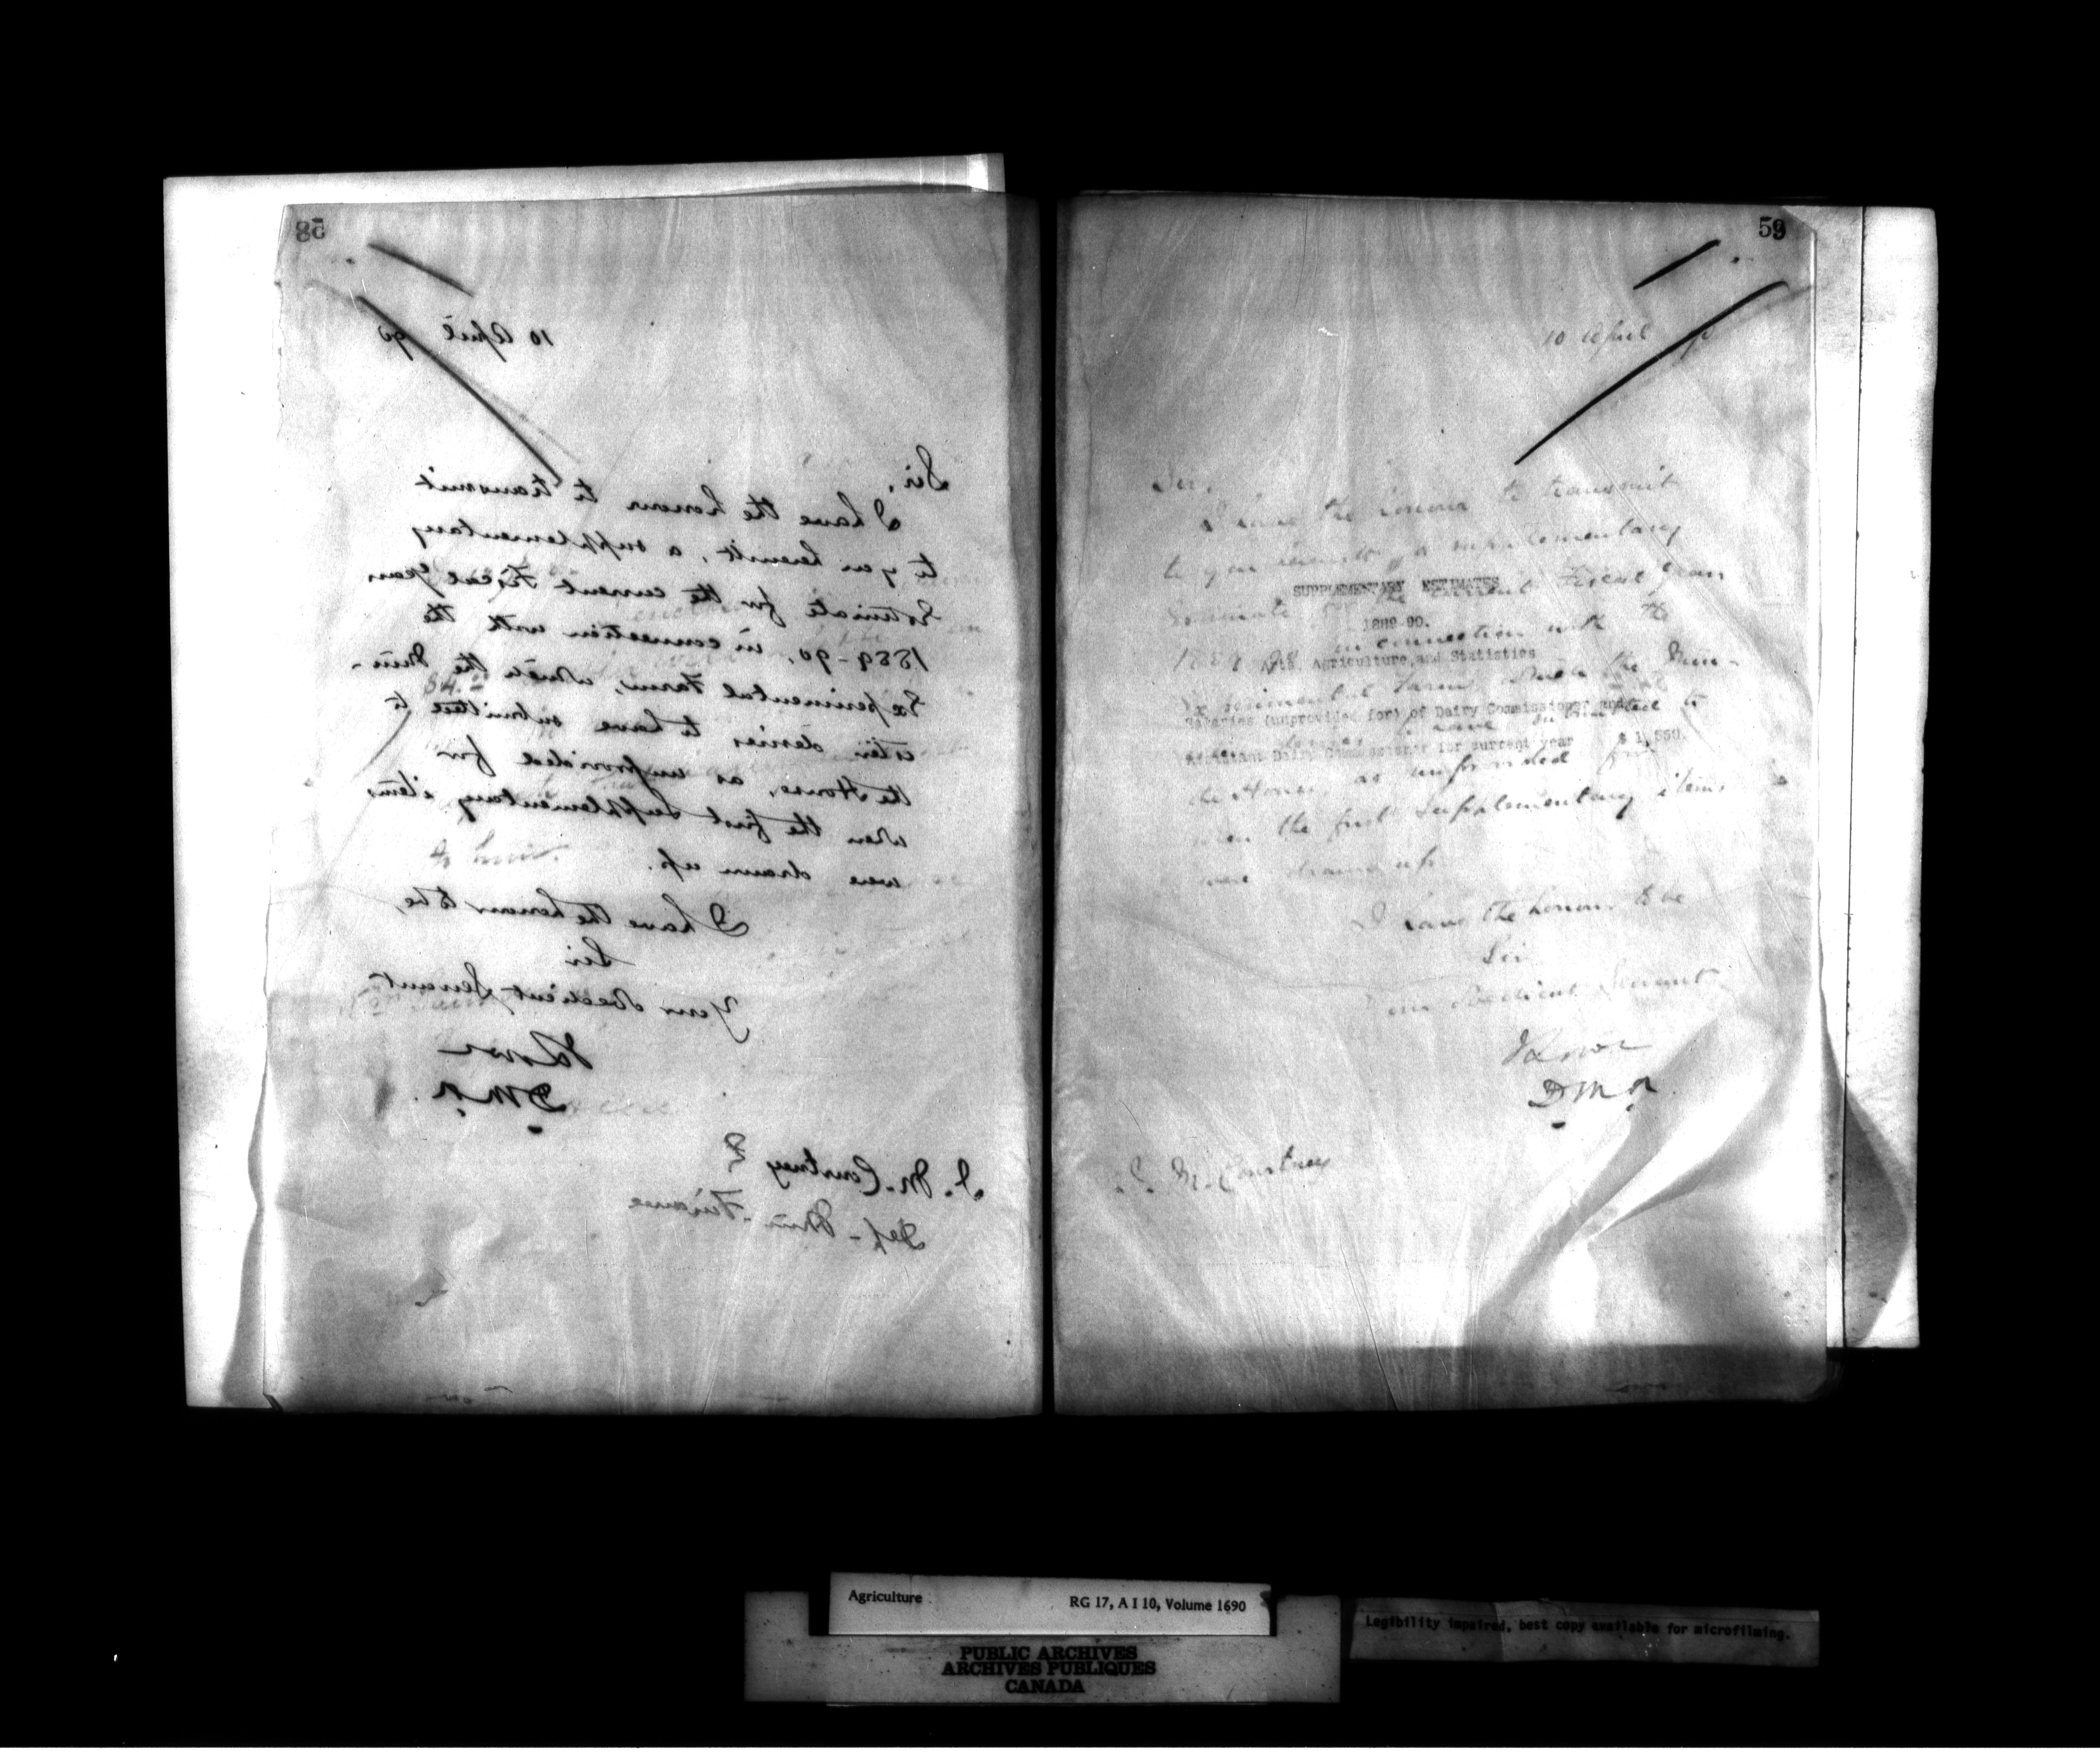 58
10 April 90
Sir,
I have the honour to transmit
to you herewith, a supplementary
Estimate for the current Fiscal Year
1889-90, in connection with the
Experimental Farm, which the Min-
ister desires to have submitted to
the House, as unprovided for
when the first Supplementary items
were drawn up.
I have the honour to be,
Sir
Your Obedient Servant
DMA.
J. M. Courtney
Dep-Min-Finance
59
10 April
Sir,
I have the honour to transmit
to you herewith, a supplementary
SUPPLEMENTARY ESTIMATES
Estimate for the current Fiscal Year
1889-90.
1889-90 in connection with the
Arts, Agriculture, and Statistics
Experimental Farm, which the Min-
Salaries (unprovided for) of Dairy Commissioner and
have submitted to
Assistant Dairy Commissioner for current year $ 1,550.
the House, as unprovided for
when the first Supplementary items
were drawn up
I have the honour to be
Sir
Your Obedient Servant
DMA
J. M. Courtney
Agriculture RG 17, A I 10, Volume 1690
PUBLIC ARCHIVES
ARCHIVES PUBLIQUES
CANADA
Legibility impaired, best copy available for microfilming.